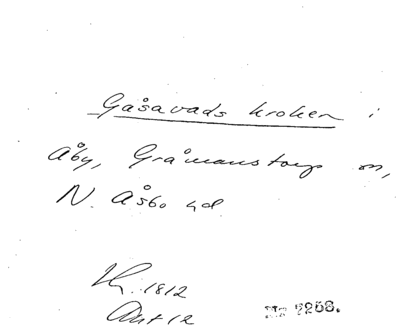 Gåsavads kroken i
Åby, Gråmanstorps sn,
N. Åsbo hd
1812
Akt 12
No 9208.